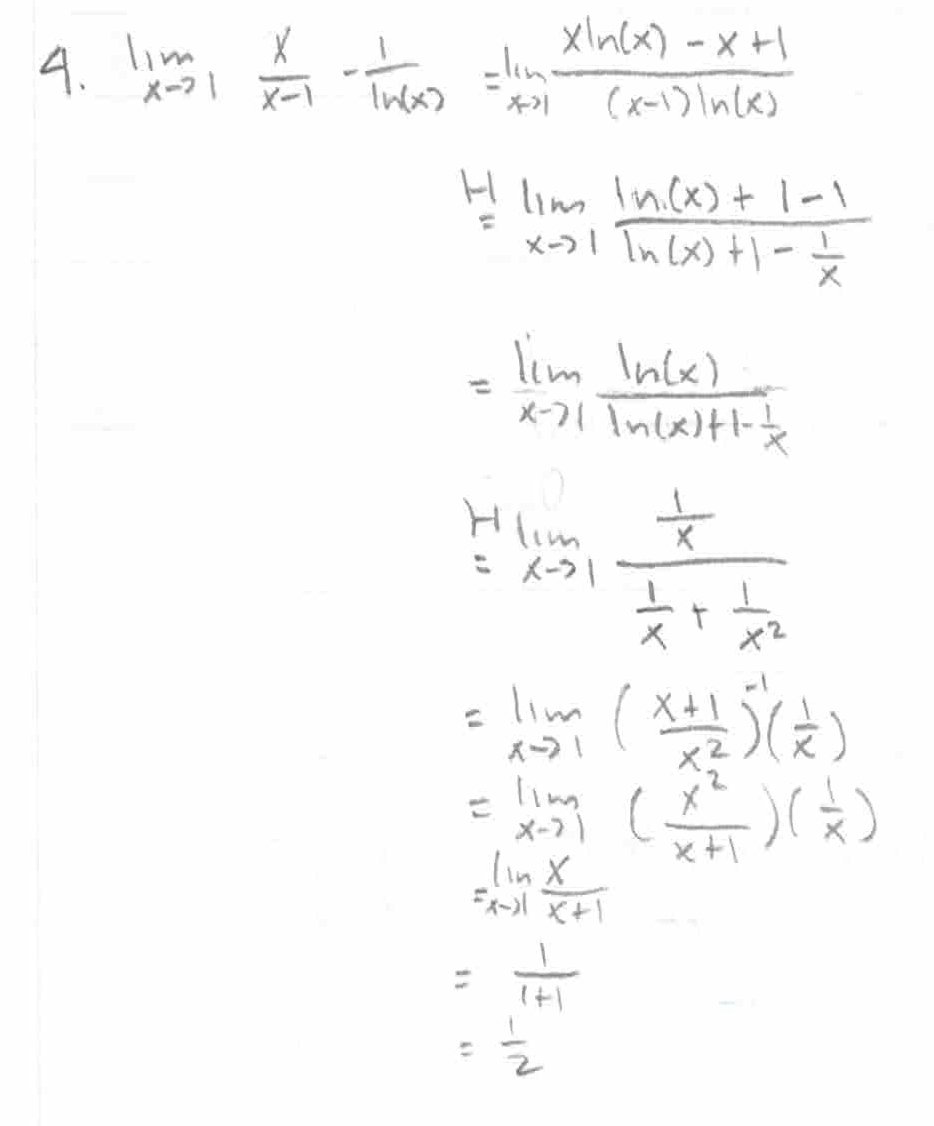 4. lim x->1 x/(x-1) - 1/ln(x) = lim x->1 (xln(x) - x + 1)/((x-1)ln(x))
H= lim x->1 (ln(x) + 1 - 1)/(ln(x) + 1 - 1/x)
= lim x->1 ln(x)/(ln(x) + 1 - 1/x)
H= lim x->1 (1/x)/(1/x + 1/x²)
= lim x->1 ((x+1)/x²)⁻¹(1/x)
= lim x->1 (x²/(x+1))(1/x)
= lim x->1 x/(x+1)
= 1/(1+1)
= 1/2